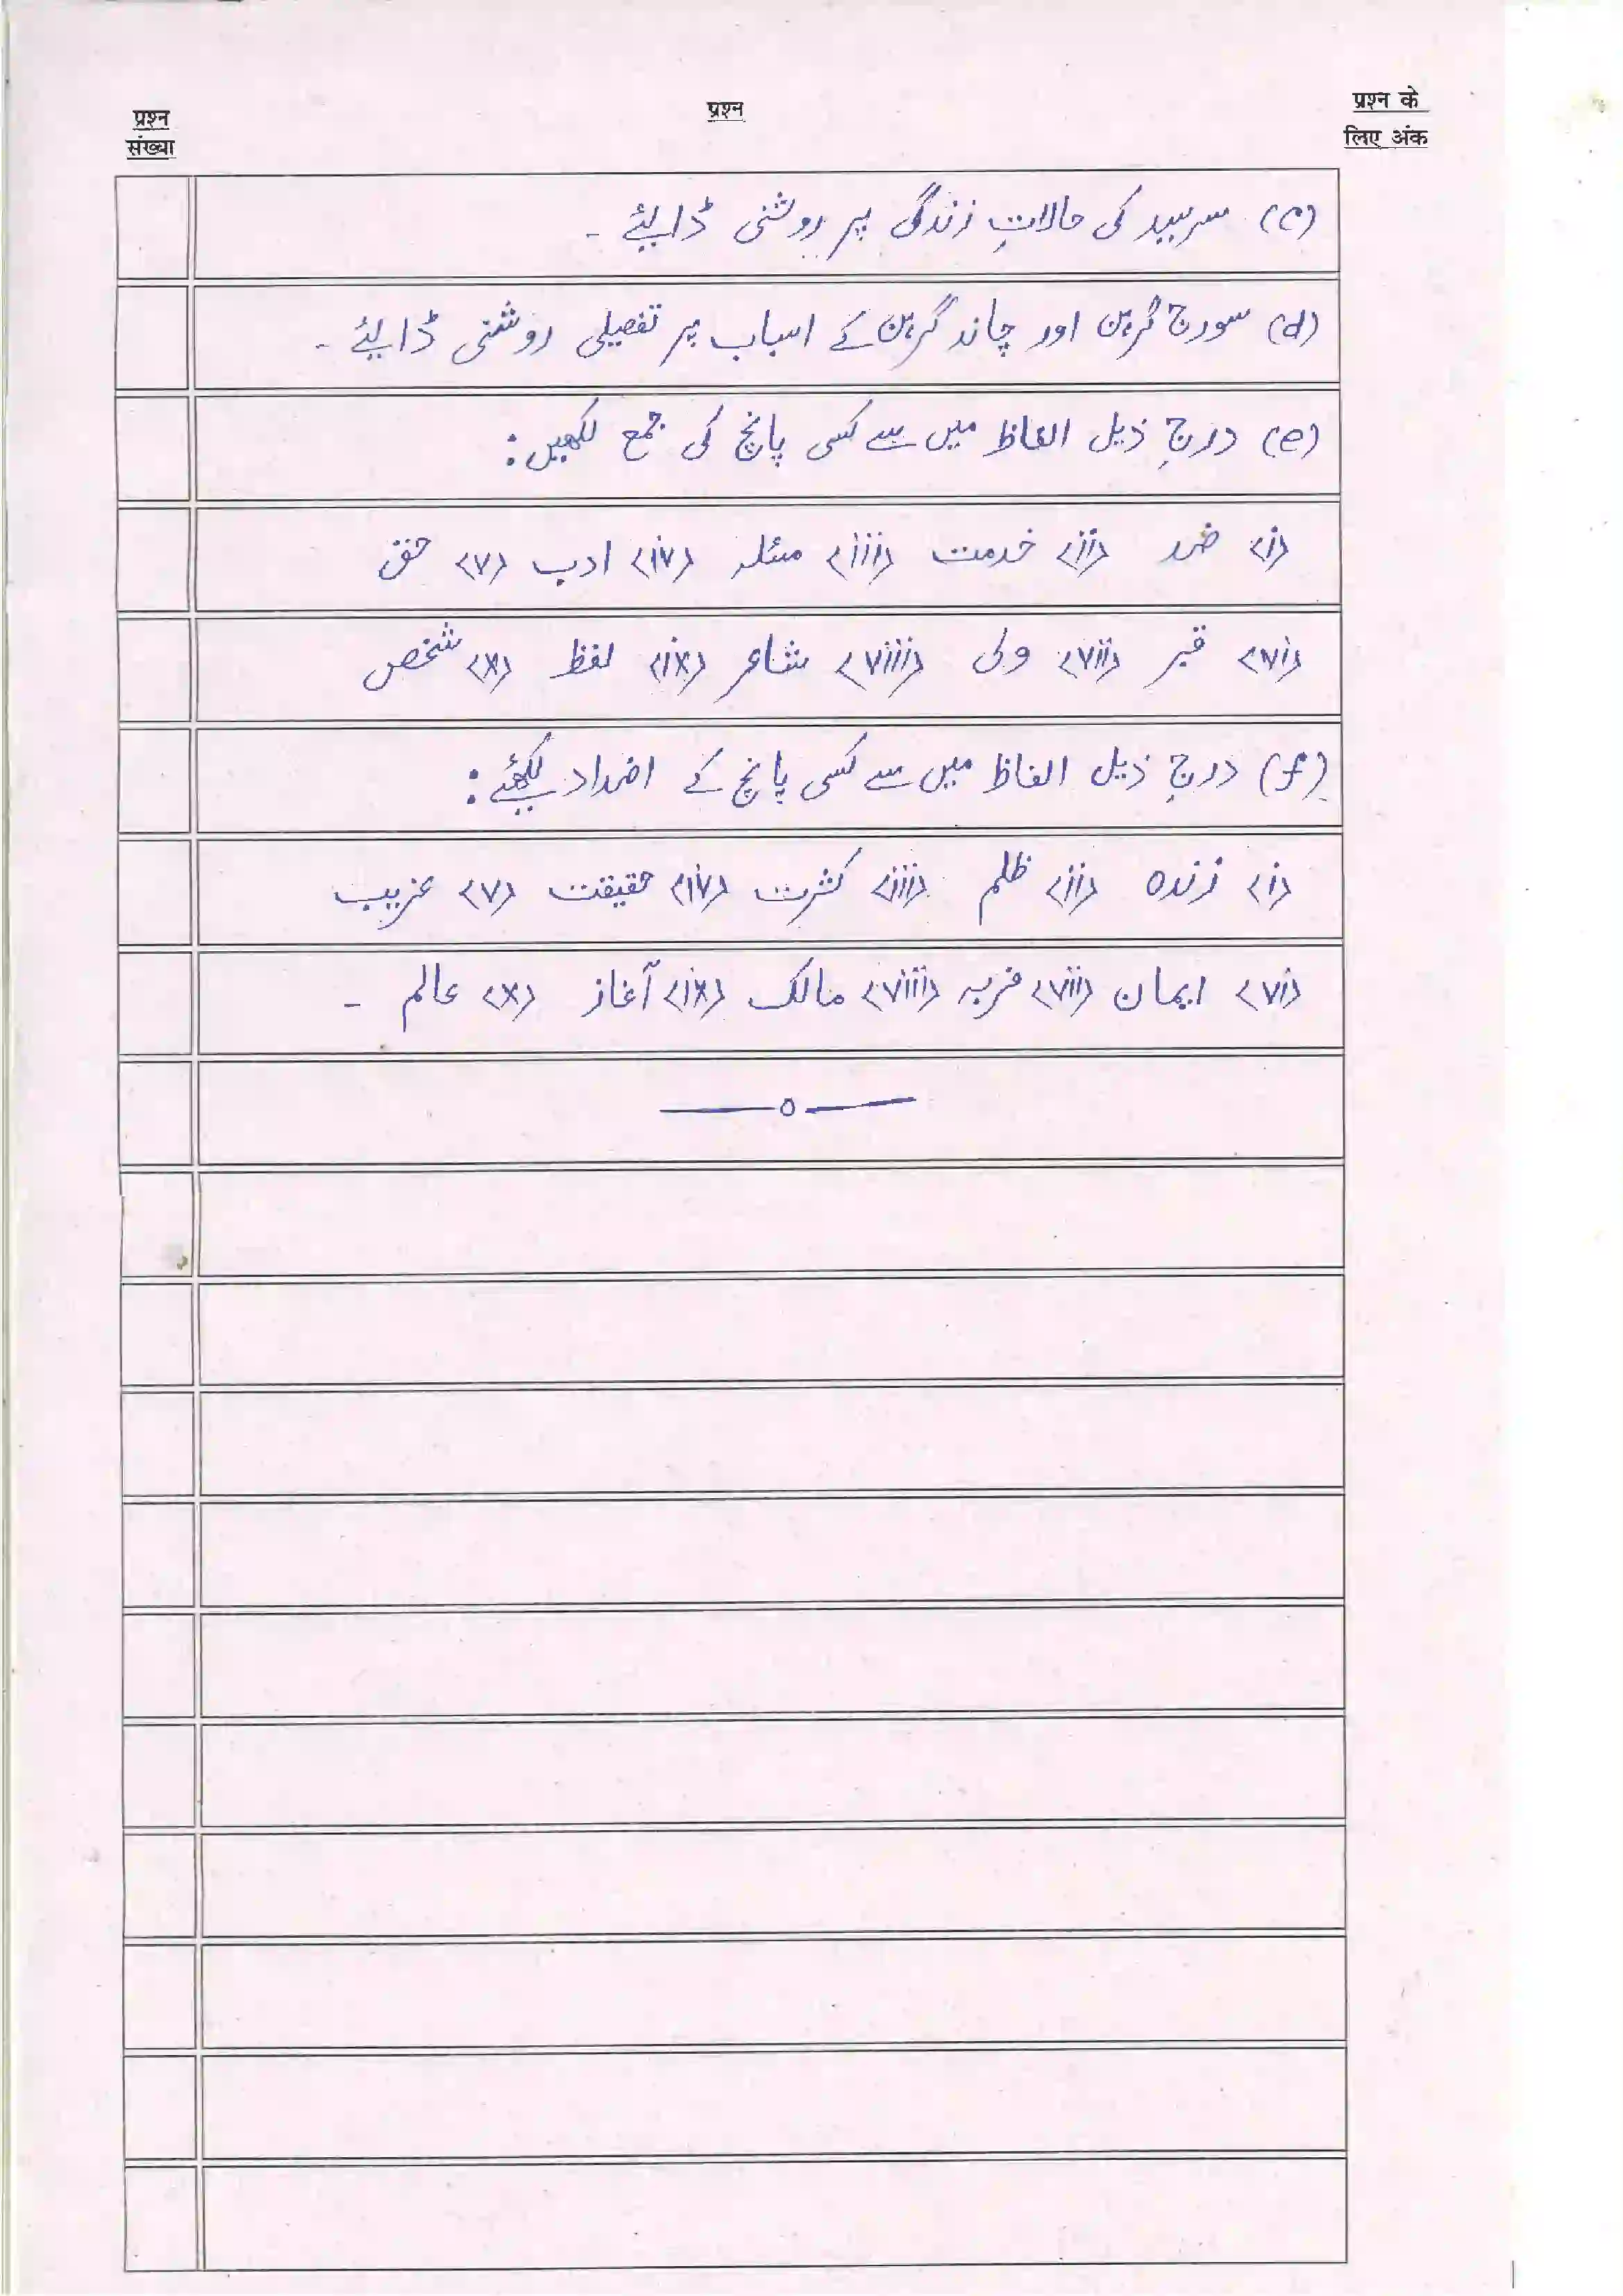 प्रश्न संख्या
प्रश्न
प्रश्न के लिए अंक
(c) سرسید کی حالاتِ زندگی پر روشنی ڈالیئے ۔
(d) سورج گرہن اور چاند گرہن کے اسباب پر تفصیلی روشنی ڈالیئے ۔
(e) درجِ ذیل الفاظ میں سے کسی پانچ کی جمع لکھیں:
<i> ضد <ii> خدمت <iii> مسئلہ <iv> ادب <v> حق
<vi> قبر <vii> ولی <viii> شاعر <ix> لفظ <x> شخص
(f) درجِ ذیل الفاظ میں سے کسی پانچ کے اضداد لکھیئے:
<i> زندہ <ii> ظلم <iii> کثرت <iv> حقیقت <v> غریب
<vi> ایمان <vii> فربہ <viii> مالک <ix> آغاز <x> عالم ۔